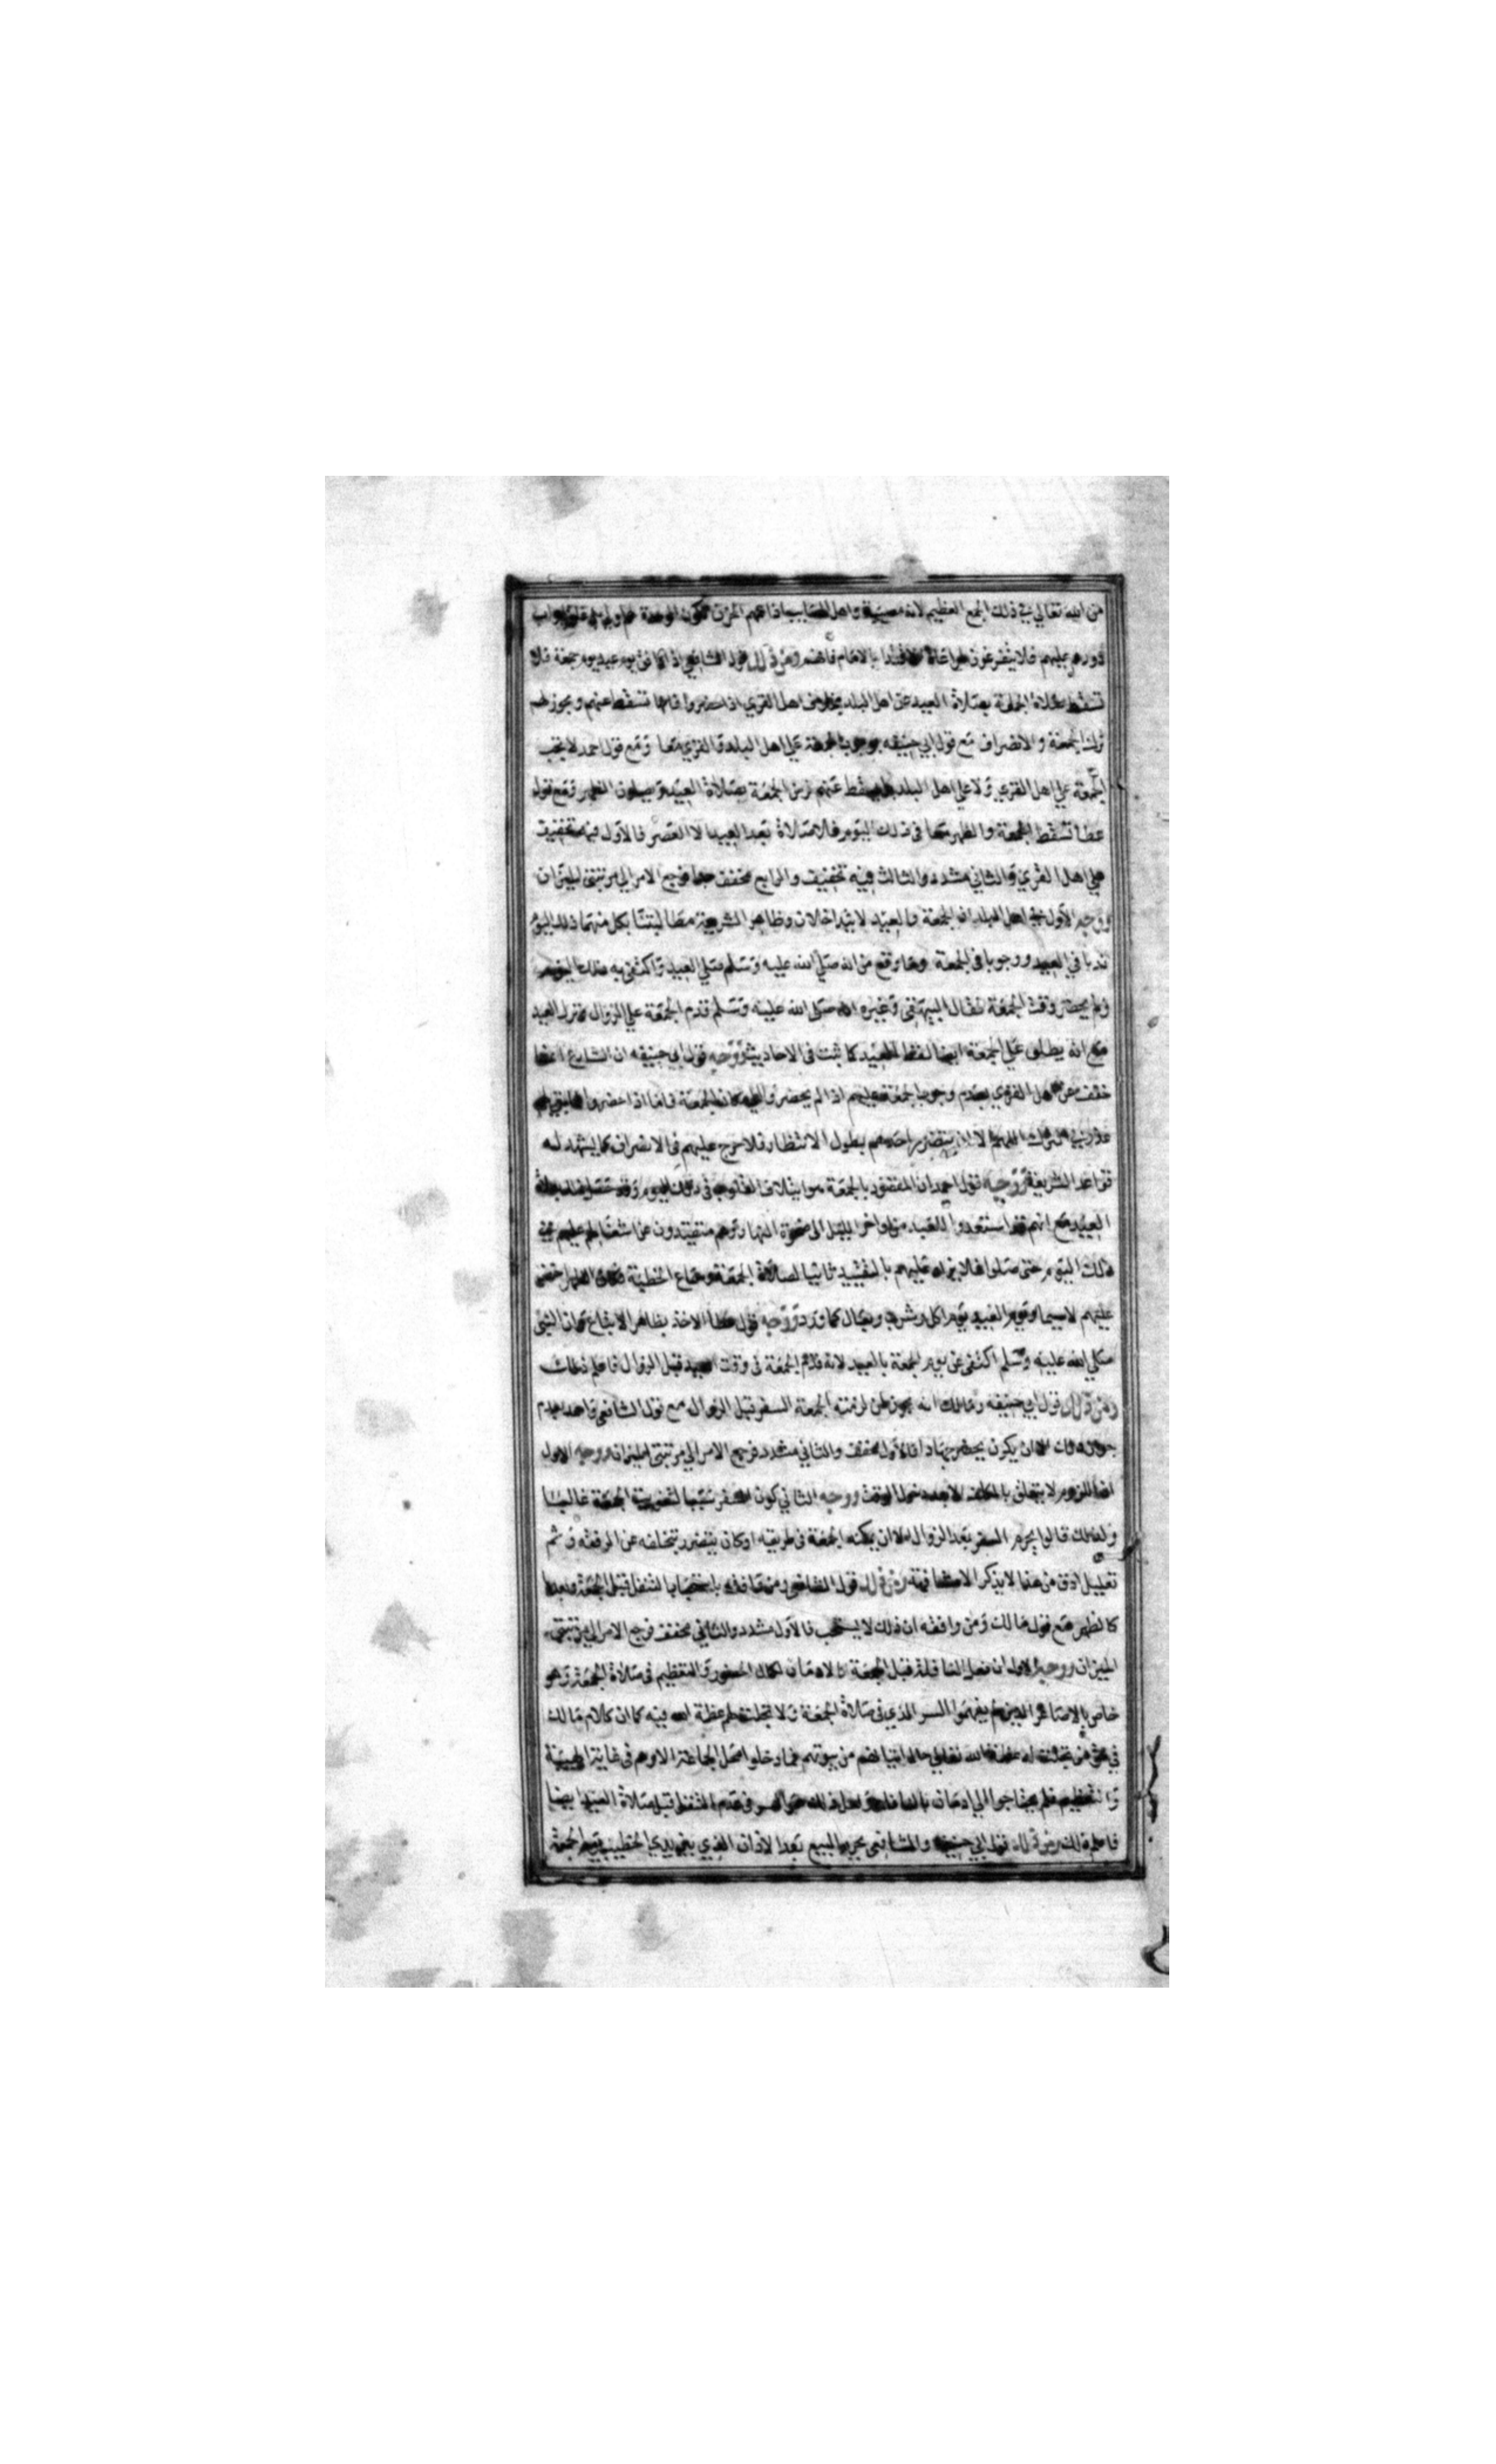 من الله تعالى في ذلك الجمع العظيم لانه مصيبة واهل المصايب اذا عمهم الحزن تكون الوحدة لهم اولى
دورهم عليهم فلا يتفرغون لمراعاة الاقتدا بالامام فافهم ومن ذلك قول الشافعي اذا اتفق يوم عيد يوم جمعة فلا
تسقط صلاة الجمعة بصلاة العيد عن اهل البلد بخلاف اهل القرى اذا حضروا فانها تسقط عنهم ويجوز لهم
ترك الجمعة والانصراف مع قول ابي حنيفه بوجوب الجمعة على اهل البلد والقرى معا ومع قول احمد لا تجب
الجمعة على اهل القرى ولا على اهل البلد بل يسقط عنهم فرض الجمعة بصلاة العيد ويصلون الظهر ومع قول
عطا تسقط الجمعة والظهر معا في ذلك اليوم فلا صلاة بعد العيد الا العصر فالاول فيه تخفيف
على اهل القرى والثاني مشدد والثالث فيه تخفيف والرابع مخفف جدا فرجع الامر الى مرتبتي الميزان
ووجه الاول في اهل البلد ان الجمعة والعيد لا يتداخلان وظاهر الشريعة مطالبتنا بكل منهما ذلك اليوم
ندبا في العيد ووجوبا في الجمعة وما وقع من انه صلى الله عليه وسلم صلى العيد واكتفى به ذلك اليوم
ولم يحضر وقت الجمعة فقال البيهقي وغيره انه صلى الله عليه وسلم قدم الجمعة على الزوال وترك العيد
مع انه يطلق على الجمعة ايضا لفظ العيد كما ثبت في الاحاديث ووجه قول ابي حنيفه ان الشارع انما
خفف عن اهل القرى بعدم وجوب الجمعة عليهم اذا لم يحضروا مكان الجمعة فاما اذا حضروا فما بقي لهم
عذر في ترك الا ان يتضرر احدهم بطول الانتظار فلا حرج عليهم في الانصراف كما يشهد له
قواعد الشريعة ووجه قول احمد ان المقصود بالجمعة هو ايتلاف القلوب في ذلك اليوم وقد حصل بصلاة
العيد مع انهم قد استعدوا للعيد من اواخر الليل الى ضحوة النهار وهم متقيدون عن اشغالهم عليهم في
ذلك اليوم حتى صلوا فلا يزاد عليهم بالتقييد ثانيا لصلاة الجمعة وسماع الخطبة فكان الظهر اخف
عليهم لاسيما ويوم العيد يوم اكل وشرب وبعال كما ورد ووجه قول عطا الاخذ بظاهر الاتباع فان النبي
صلى الله عليه وسلم اكتفى عن يوم الجمعة بالعيد لانه قدم الجمعة في وقت العيد قبل الزوال فاعلم ذلك
ومن ذلك قول ابي حنيفه ومالك انه يجوز لمن لزمته الجمعة السفر قبل الزوال مع قول الشافعي واحمد بعدم
جواز ذلك الا ان يكون يحضر جهادا فالاول مخفف والثاني مشدد فرجع الامر الى مرتبتي الميزان ووجه الاول
ان اللزوم لا يتعلق بالمكلف الا بعد دخول الوقت ووجه الثاني كون السفر سببا لتفويت الجمعة غالبا
ولذلك قالوا يحرم السفر بعد الزوال الا ان يمكنه الجمعة في طريقه او كان يتضرر بتخلفه عن الرفقه وثم
تعليل ادق من هذا لا يذكر الا مشافهة ومن ذلك قول الشافعي ومن وافقه باستحباب التنفل قبل الجمعة وبعدها
كالظهر مع قول مالك ومن وافقه ان ذلك لا يستحب فالاول مشدد والثاني مخفف فرجع الامر الى مرتبتي
الميزان ووجه الاول ان فعل النافلة قبل الجمعة كالادمان لكمال الحضور والتعظيم في صلاة الجمعة وهو
خاص بالاصاغر الذين لم يفهموا السر الذي في صلاة الجمعة ولا تجلت لهم عظمة الله فيه كما ان كلام مالك
في حق من تجلت له عظمة الله تعالى حال اتيانهم من بيوتهم فما دخلوا محل الجماعة الا وهم في غاية الهيبة
والتعظيم فلم يحتاجوا الى ادمان بالنافلة ولعل ذلك هو السر في عدم التنفل قبل صلاة العيد ايضا
فاعلم ذلك ومن ذلك قول ابي حنيفه والشافعي بحرمة البيع بعد الاذان الذي بين يدي الخطيب يوم الجمعة